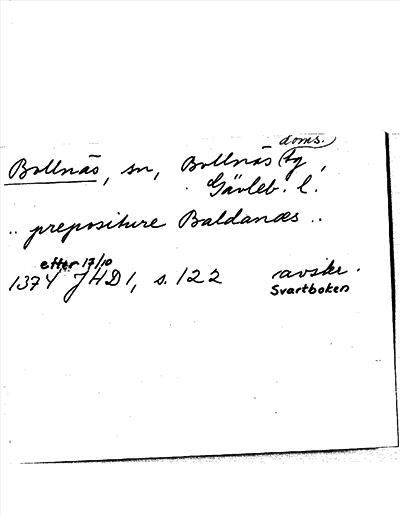 Bollnäs, sn, Bollnäs doms. tg,
Gävleb. l.
.. prepositure Baldanæs ..
efter 17/10
1374 JHD1, s. 122 avskr.
Svartboken